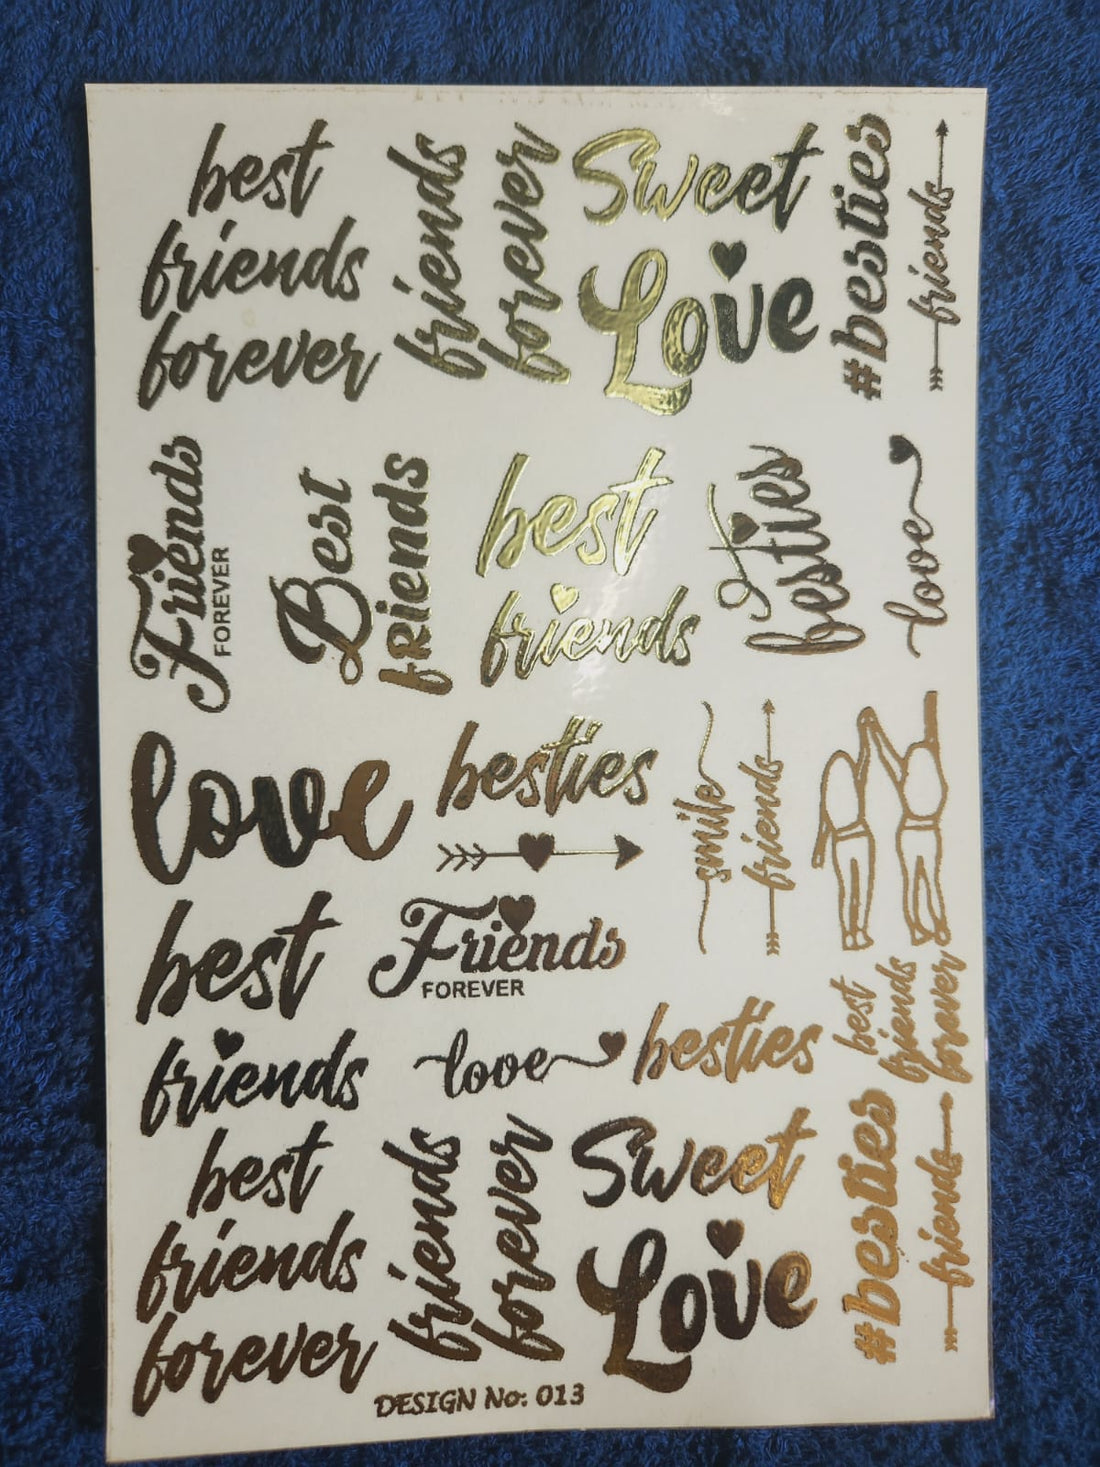 best
friends
forever
friends
forever
Sweet
Love
#besties
friends
Friends
FOREVER
Best
FRiends
best
friends
besties
love
love
besties
smile
friends
best
friends
forever
best
friends
Friends
FOREVER
love
besties
best
friends
forever
friends
forever
Sweet
Love
#besties
friends
DESIGN No: 013